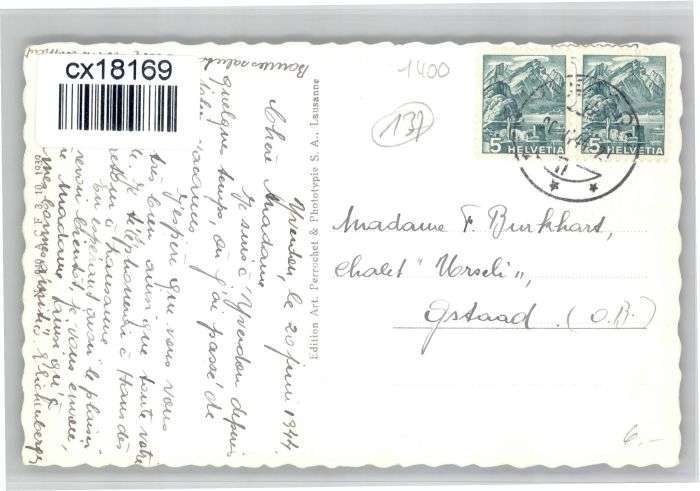 cx18169
1400
137
5
HELVETIA
5
HELVETIA
Madame F. Burkhart,
Chalet "Urseli",
Gstaad. (O.B.)
6.-
Edition Art. Perrochet & Phototypie S. A., Lausanne
Yverdon, le 20 juin 1944.
Chère Madame,
Je suis à Yverdon depuis
quelques temps, où j'ai passé de
vacances
J'espère que vous vous
très bien ainsi que toute votre
Je téléphonerai à Hans dès
retour à Lausanne
En espérant avoir le plaisir
revoir bientôt je vous envoie,
Madame, ainsi qu'à